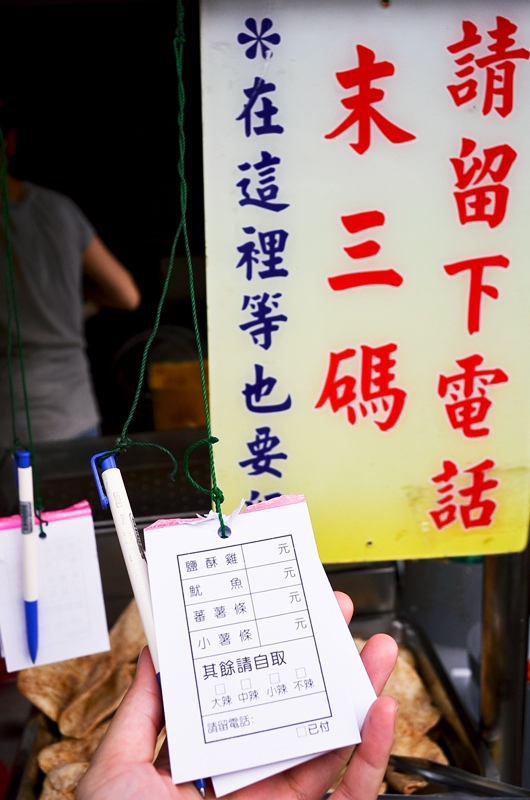 請留下電話
末三碼
＊在這裡等也要
鹽酥雞 元
魷魚 元
蕃薯條 元
小薯條 元
其餘請自取
□大辣 □中辣 □小辣 □不辣
請留電話:
□已付